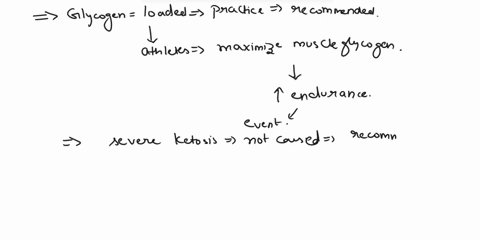 ⇒ Glycogen = loaded ⇒ practice ⇒ recommended.
↓
athletes ⇒ maximize muscle glycogen.
↓
↑ endurance.
event. ↙
⇒ severe ketosis ⇒ not caused ⇒ recomm